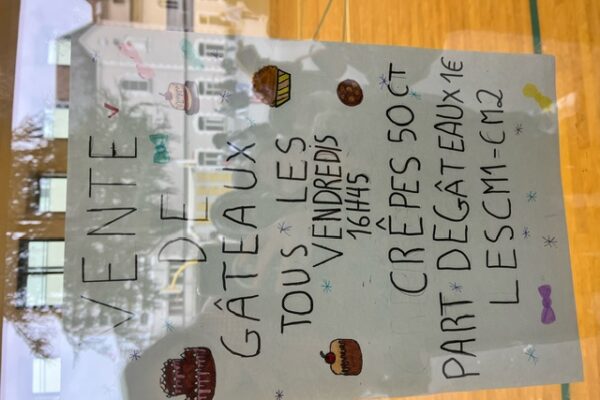 VENTE
DE
GÂTEAUX
TOUS LES
VENDREDIS
16H45
CRÊPES 50 CT
PART DE GÂTEAUX 1€
LES CM1 = CM2